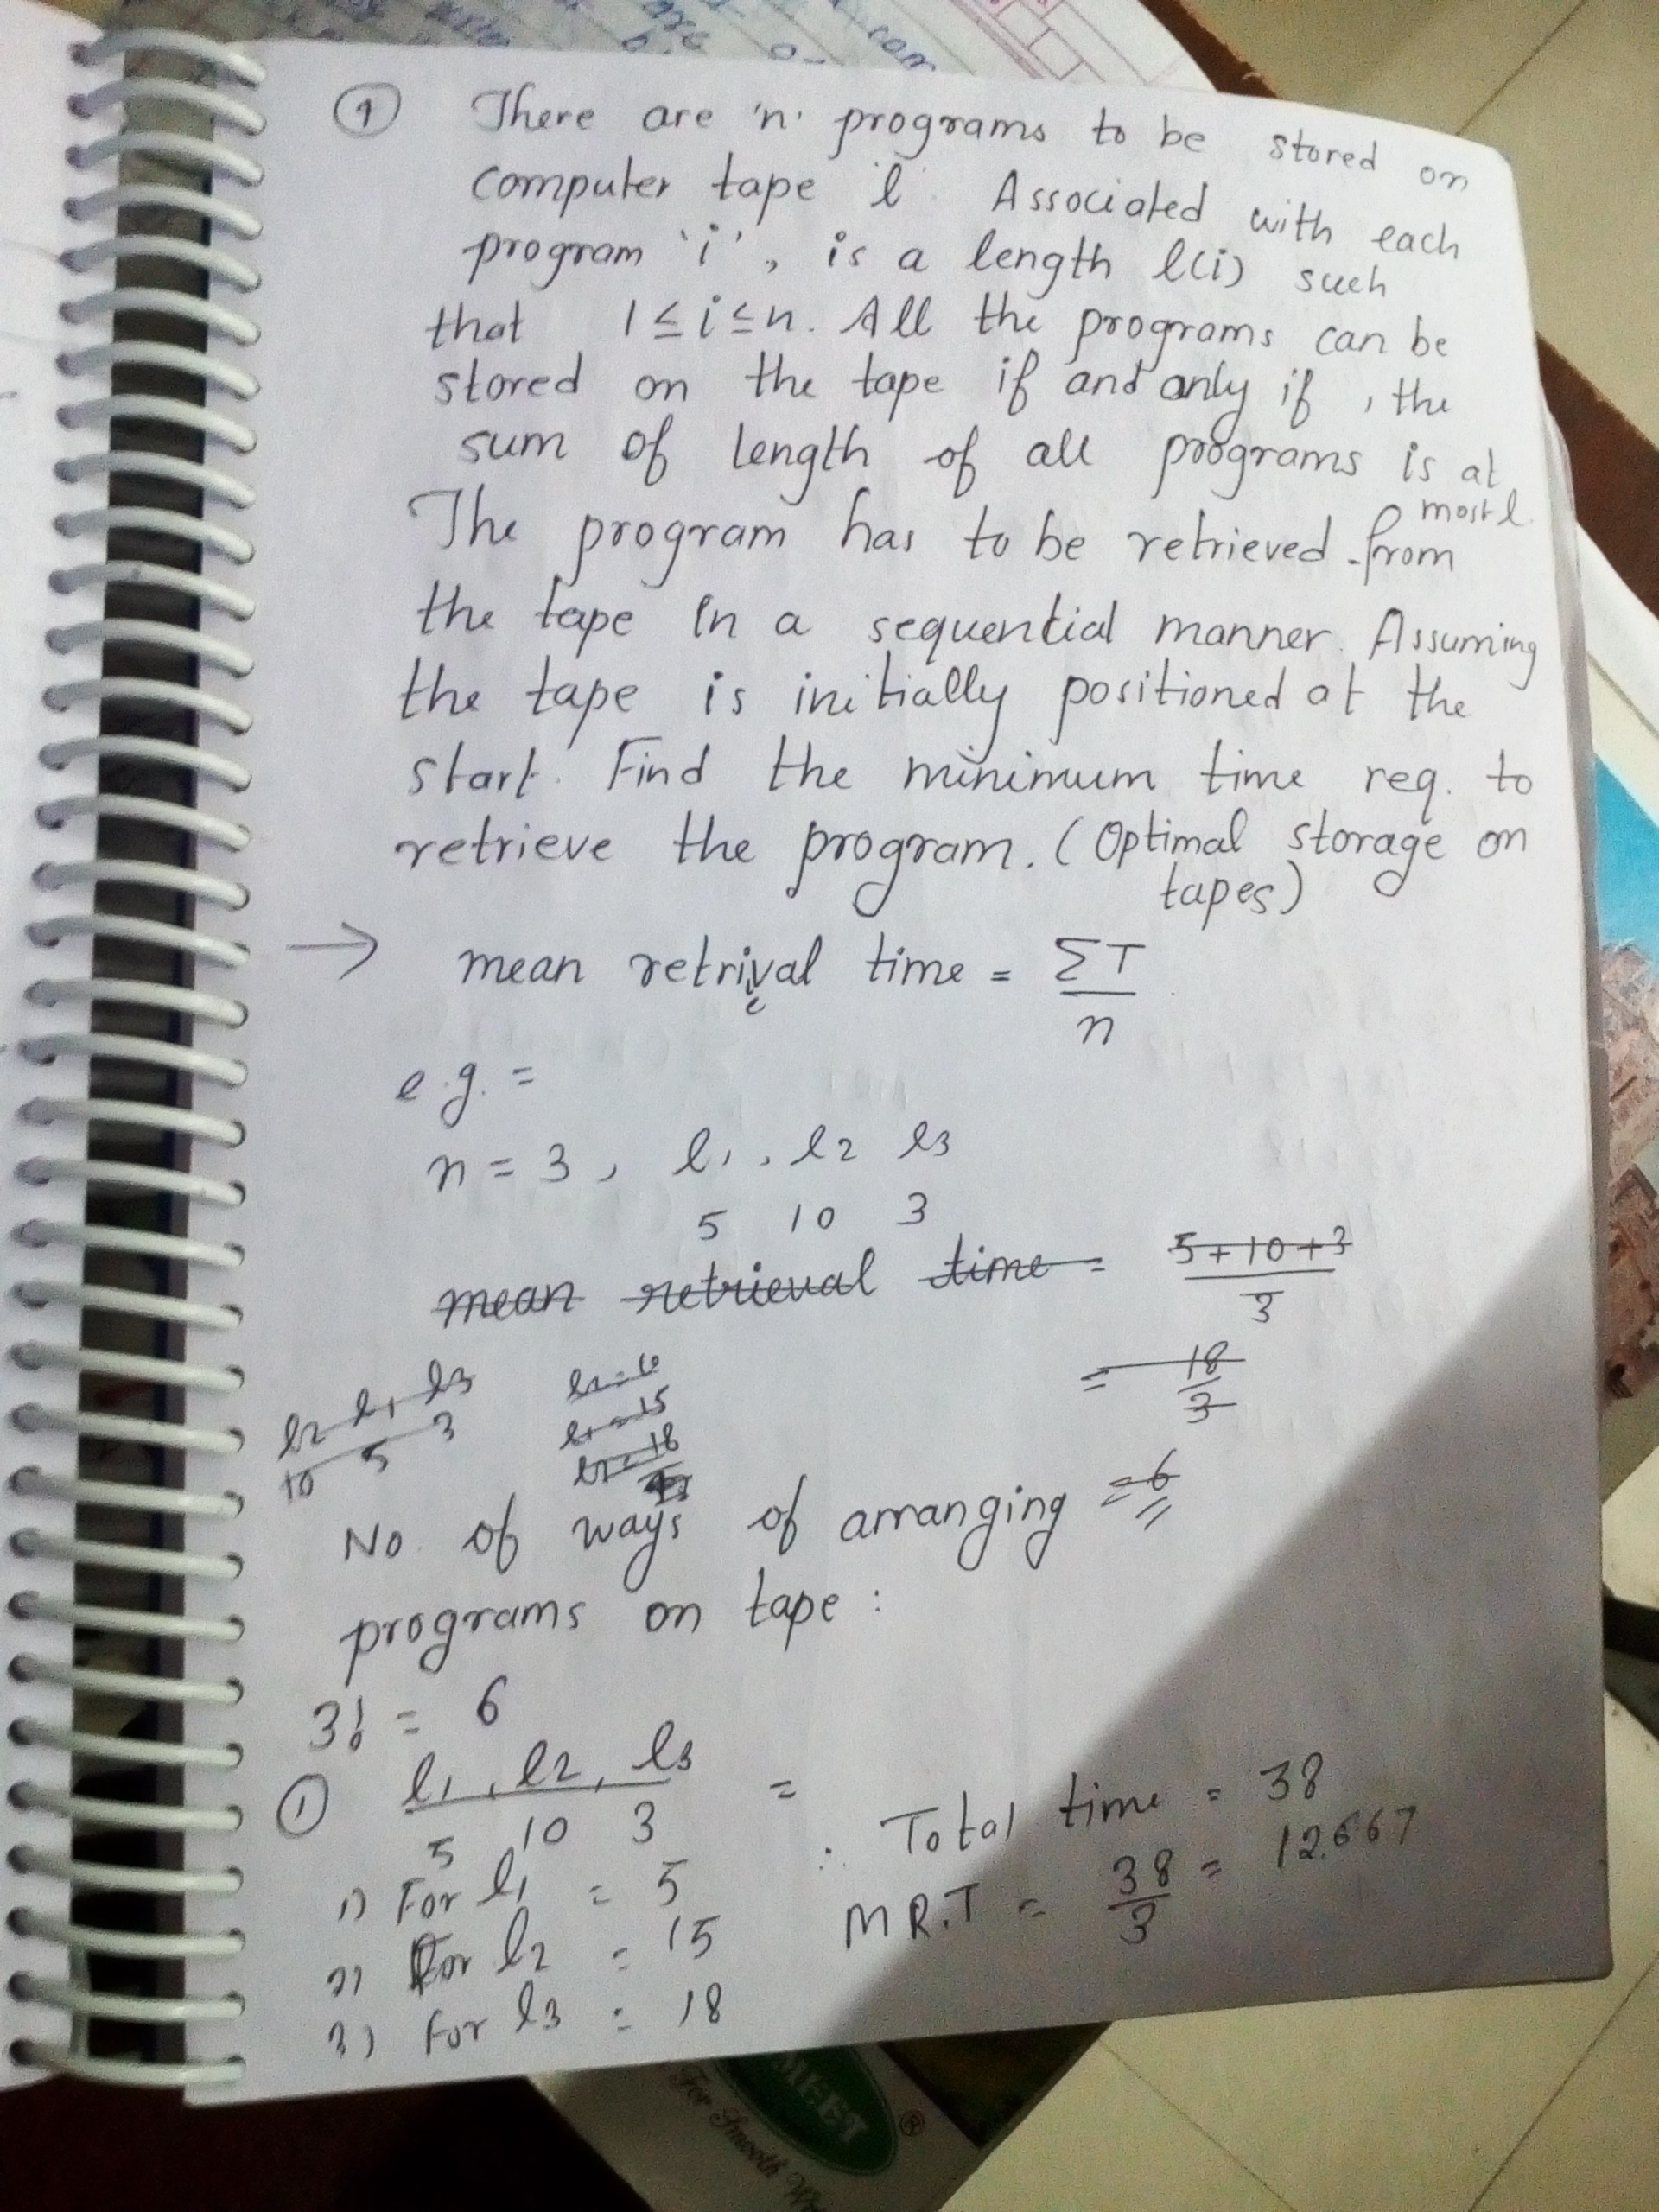 are
con
① There are 'n' programs to be stored on
computer tape 'l'. Associated with each
program 'i', is a length l(i) such
that 1 ≤ i ≤ n. All the programs can be
stored on the tape if and only if, the
sum of length of all programs is at
most l.
The program has to be retrieved from
the tape in a sequential manner. Assuming
the tape is initially positioned at the
start. Find the minimum time req. to
retrieve the program. (Optimal storage on
tapes)
→ mean retrival time = ΣT
e
n
e.g. =
n = 3, l1, l2 l3
5 10 3
mean retrieval time = 5+10+3
3
= 18
3
l2 l1 l3
10 5 3
= 6
= 15
= 18
No. of ways of arranging = 6
programs on tape :
3! = 6
① l1, l2, l3 =
5 10 3
∴ Total time = 38
1) For l1 = 5
MR.T = 38 = 12.667
3
2) For l2 = 15
3) For l3 = 18
®
For Smooth